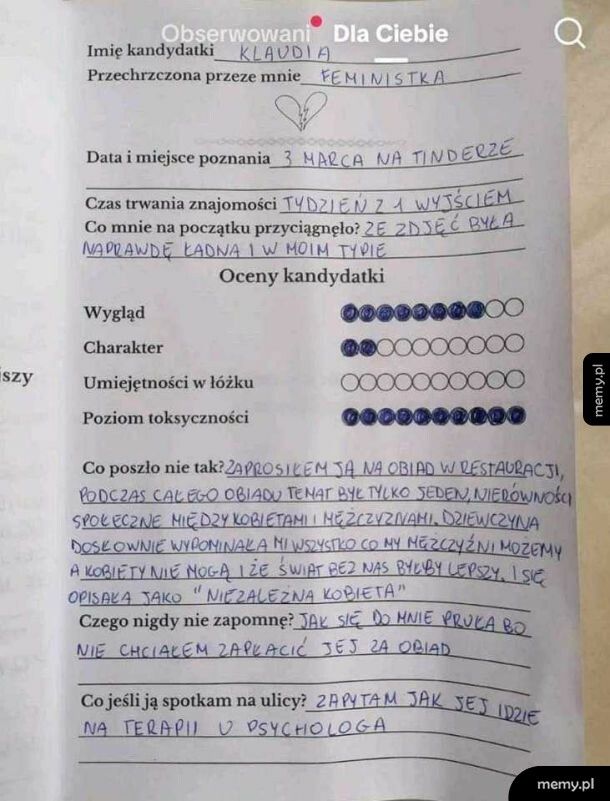 Obserwowani Dla Ciebie
Imię kandydatki KLAUDIA
Przechrzczona przeze mnie FEMINISTKA
Data i miejsce poznania 3 MARCA NA TINDERZE
Czas trwania znajomości TYDZIEŃ Z 1 WYJŚCIEM
Co mnie na początku przyciągnęło? ZE ZDJĘĆ BYŁA
NAPRAWDĘ ŁADNA I W MOIM TYPIE
Oceny kandydatki
Wygląd
Charakter
Umiejętności w łóżku
Poziom toksyczności
iszy
Co poszło nie tak? ZAPROSIŁEM JĄ NA OBIAD W RESTAURACJI,
PODCZAS CAŁEGO OBIADU TEMAT BYŁ TYLKO JEDEN, NIERÓWNOŚCI
SPOŁECZNE MIĘDZY KOBIETAMI I MĘŻCZYZNAMI. DZIEWCZYNA
DOSŁOWNIE WYPOMINAŁA MI WSZYSTKO CO MY MĘŻCZYŹNI MOŻEMY
A KOBIETY NIE MOGĄ I ŻE ŚWIAT BEZ NAS BYŁBY LEPSZY. I SIĘ
OPISAŁA JAKO "NIEZALEŻNA KOBIETA"
Czego nigdy nie zapomnę? JAK SIĘ DO MNIE PRUŁA BO
NIE CHCIAŁEM ZAPŁACIĆ JEJ ZA OBIAD
Co jeśli ją spotkam na ulicy? ZAPYTAM JAK JEJ IDZIE
NA TERAPII U PSYCHOLOGA
memy.pl
memy.pl